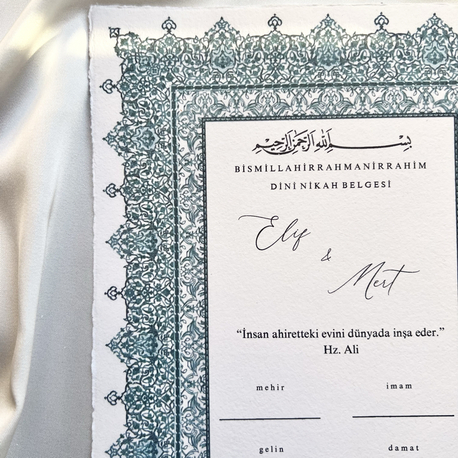 بِسْــــــمِ اللهِ الرَّحْمَنِ الرَّحِيمِ
BİSMİLLAHİRRAHMANİRRAHİM
DİNİ NİKAH BELGESİ
Elif
&
Mert
“İnsan ahiretteki evini dünyada inşa eder.”
Hz. Ali
mehir imam
gelin damat